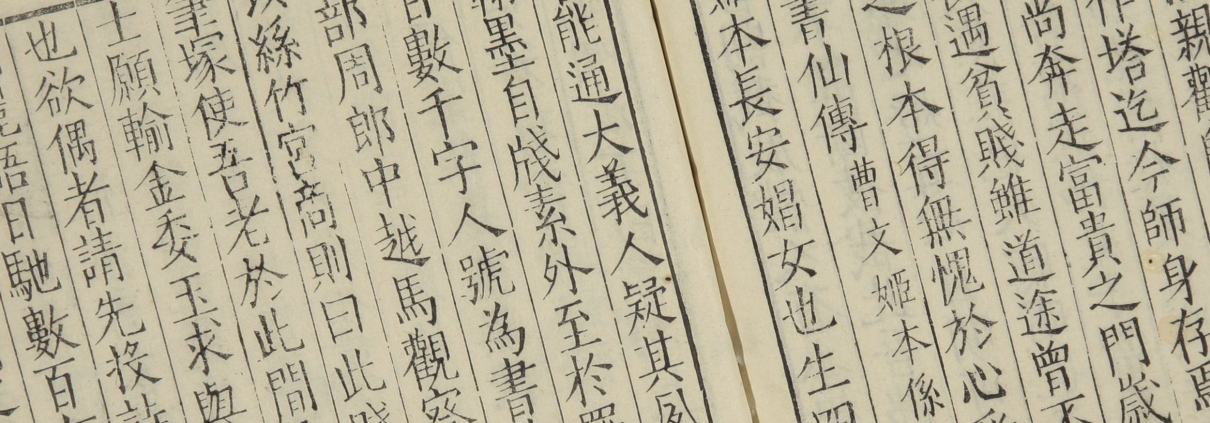 親觀
作塔迄今師身存焉
尚奔走富貴之門歲
遇貧賤雖道途曾不
之根本得無愧於心
書仙傳曹文姬本係
本長安娼女也生四
能通大義人疑其夙
翰墨自牋素外至於羅
日數千字人號為書
部周郎中越馬觀察
絲竹宮商則曰此賤
筆塚使吾老於此間
士願輸金委玉求與
也欲偶者請先投詩
語日馳數百